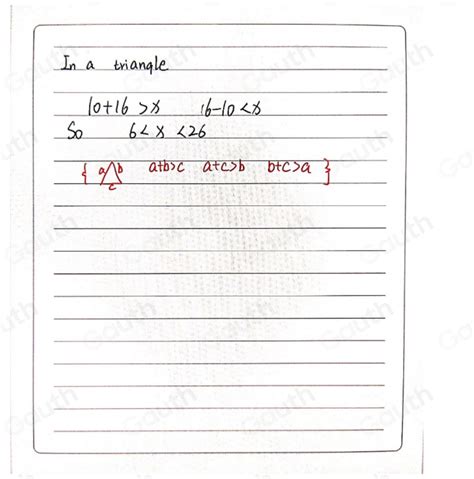 In a triangle
10+16 >x 16-10 <x
So 6< x <26
{ a b a+b>c a+c>b b+c>a }
c